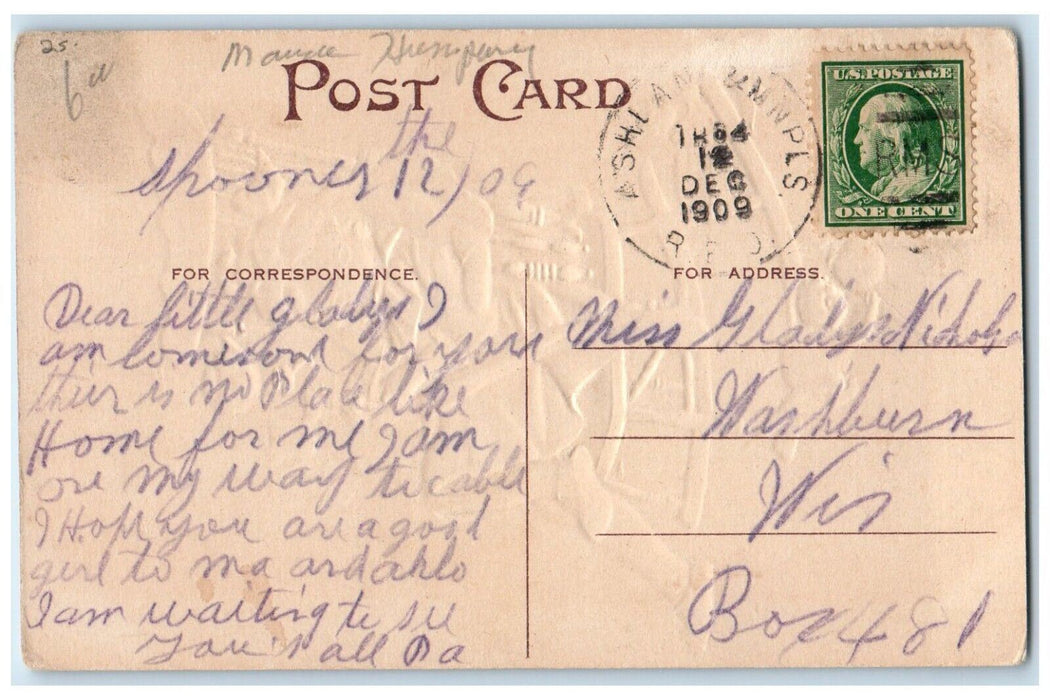 25.
6
POST CARD
ASHLAND MNPLS
TR 84
12
DEC
1909
R.P.O.
RMS
U.S. POSTAGE
ONE CENT
the
Spooner 12/09
FOR CORRESPONDENCE.
FOR ADDRESS.
Dear little gladys I
am lonesom for you
thier is no Place like
Home for me I am
on my way to cable
I Hope you are a good
girl to ma and
I am waiting to see
You all Pa
Miss Gladys Nichols
Washburn
Wis
Box 481